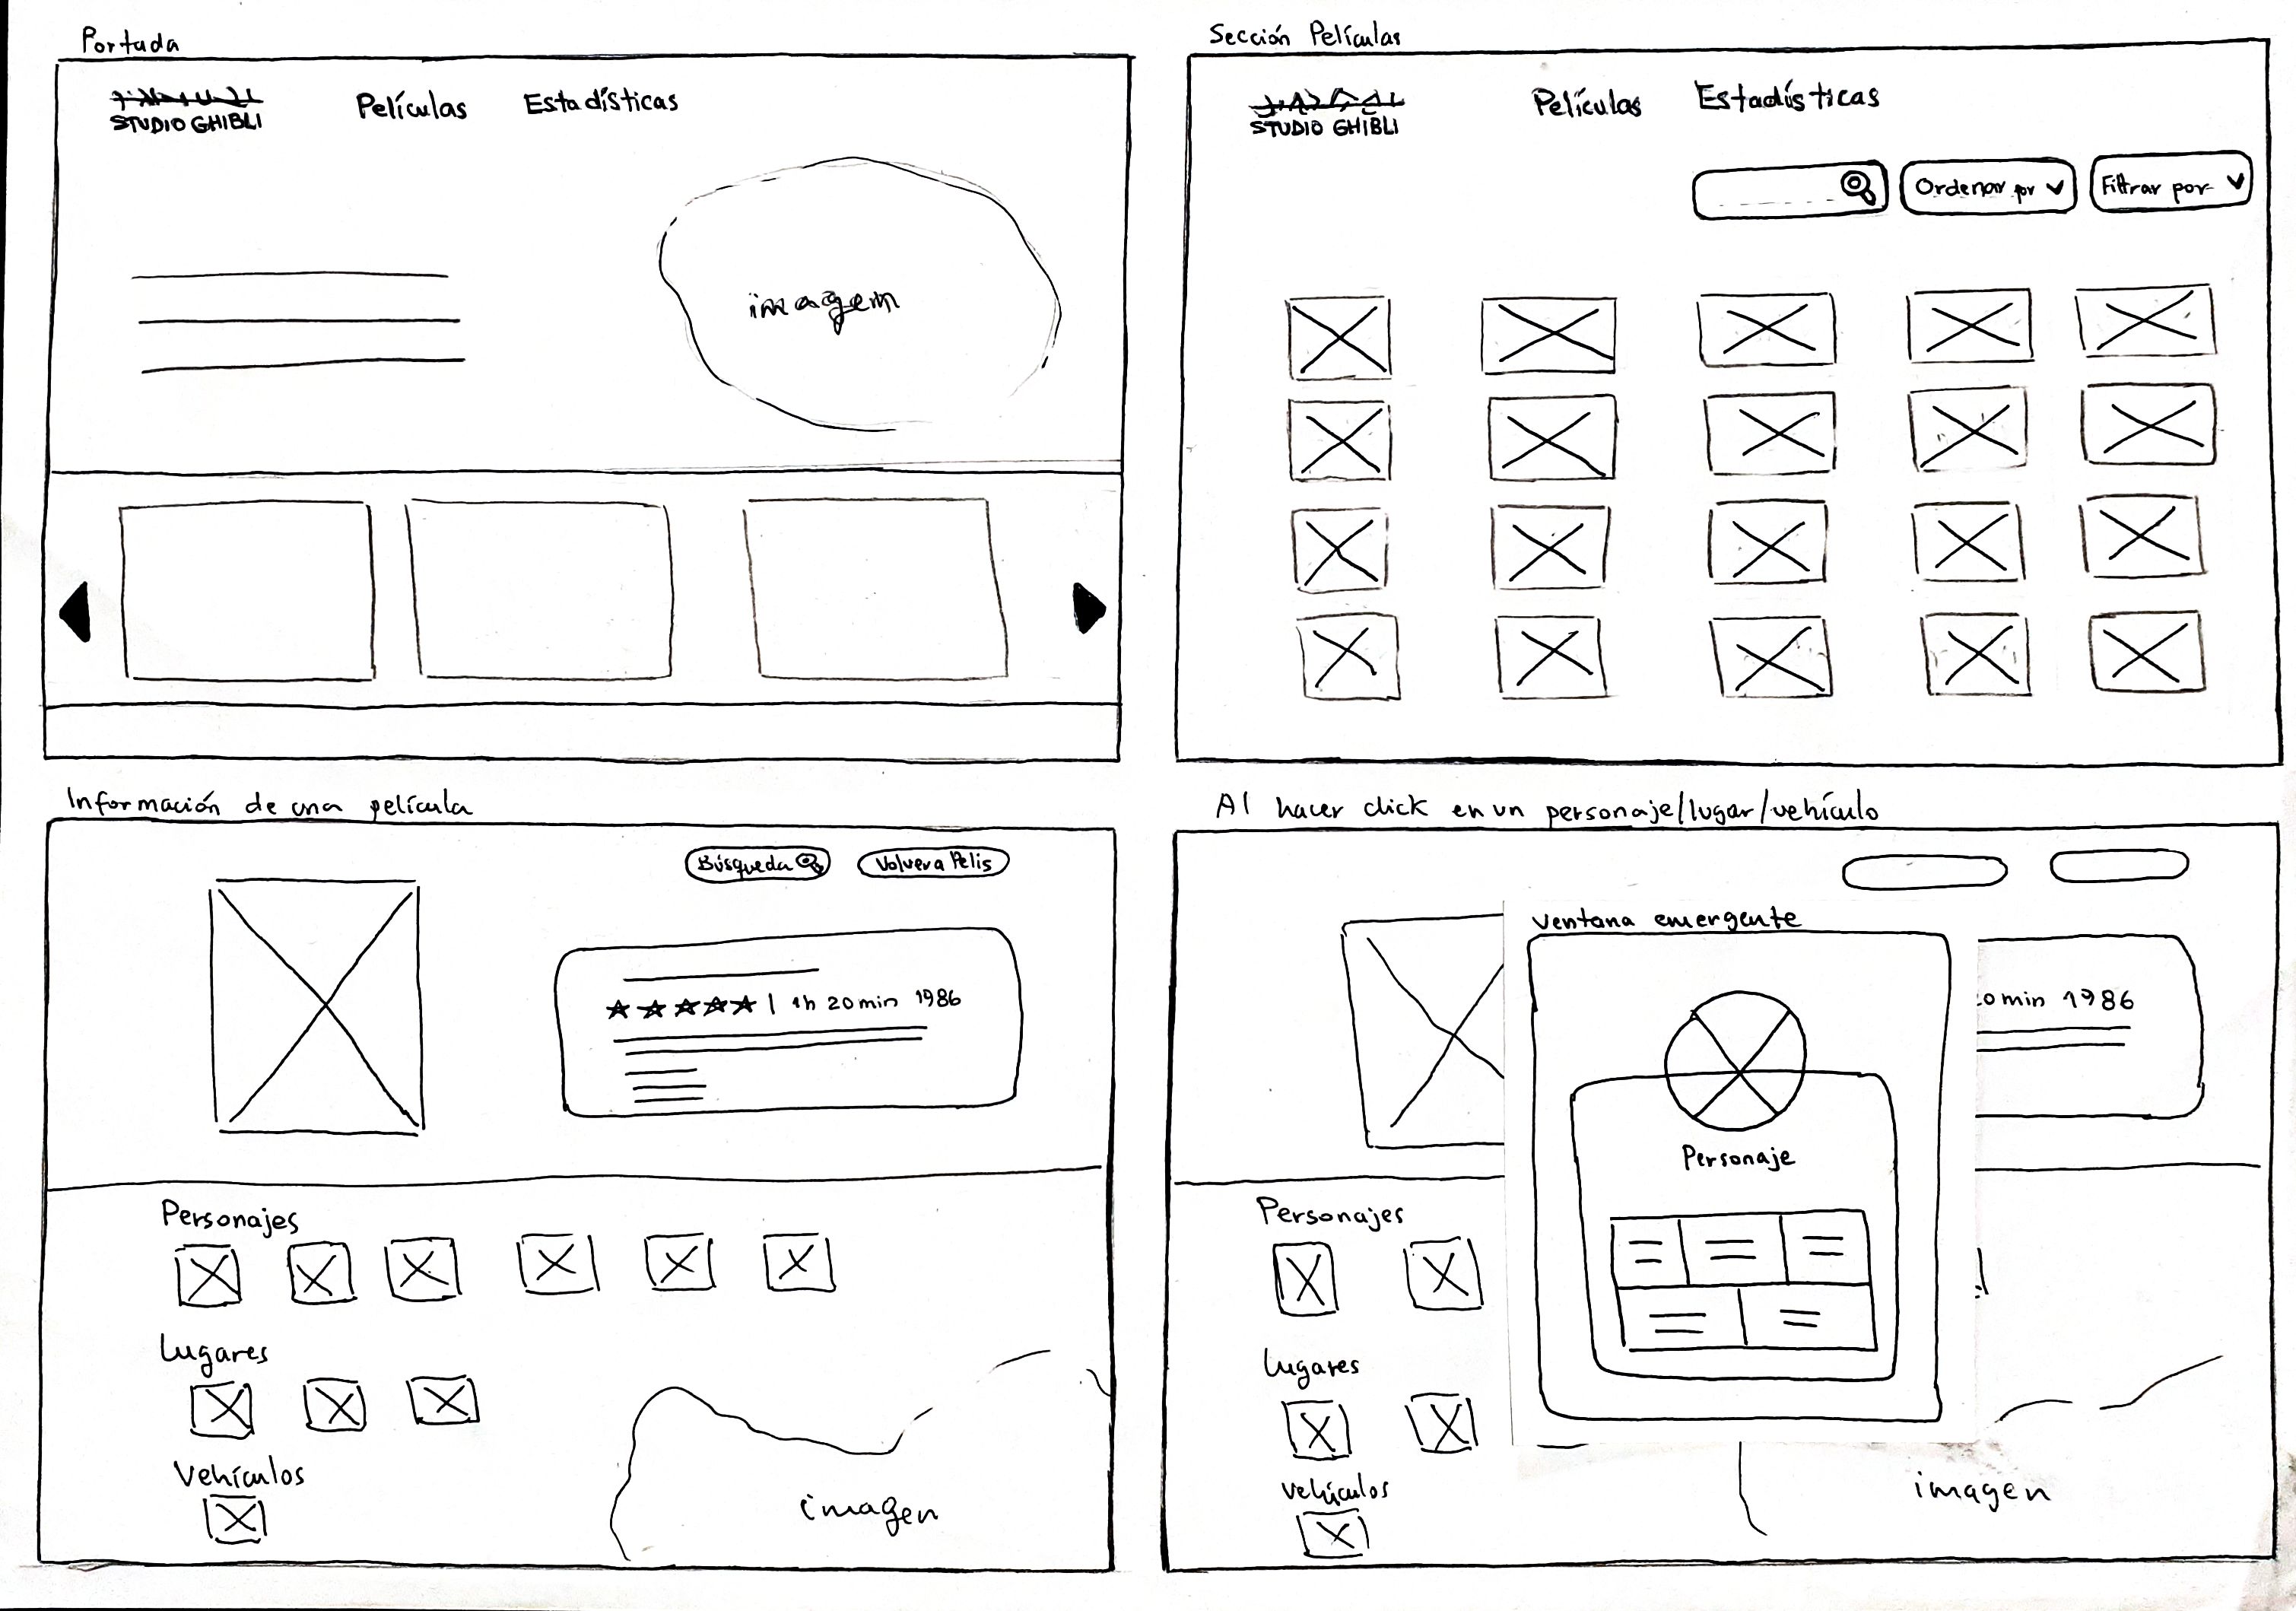 Portada
STUDIO GHIBLI
Películas
Estadísticas
imagen
Sección Películas
STUDIO GHIBLI
Películas
Estadísticas
Ordenar por
Filtrar por
Información de una película
Búsqueda
Volver a Pelis
1h 20min 1986
Personajes
Lugares
Vehículos
imagen
Al hacer click en un personaje/lugar/vehículo
Ventana emergente
0min 1986
Personaje
Personajes
Lugares
Vehículos
imagen